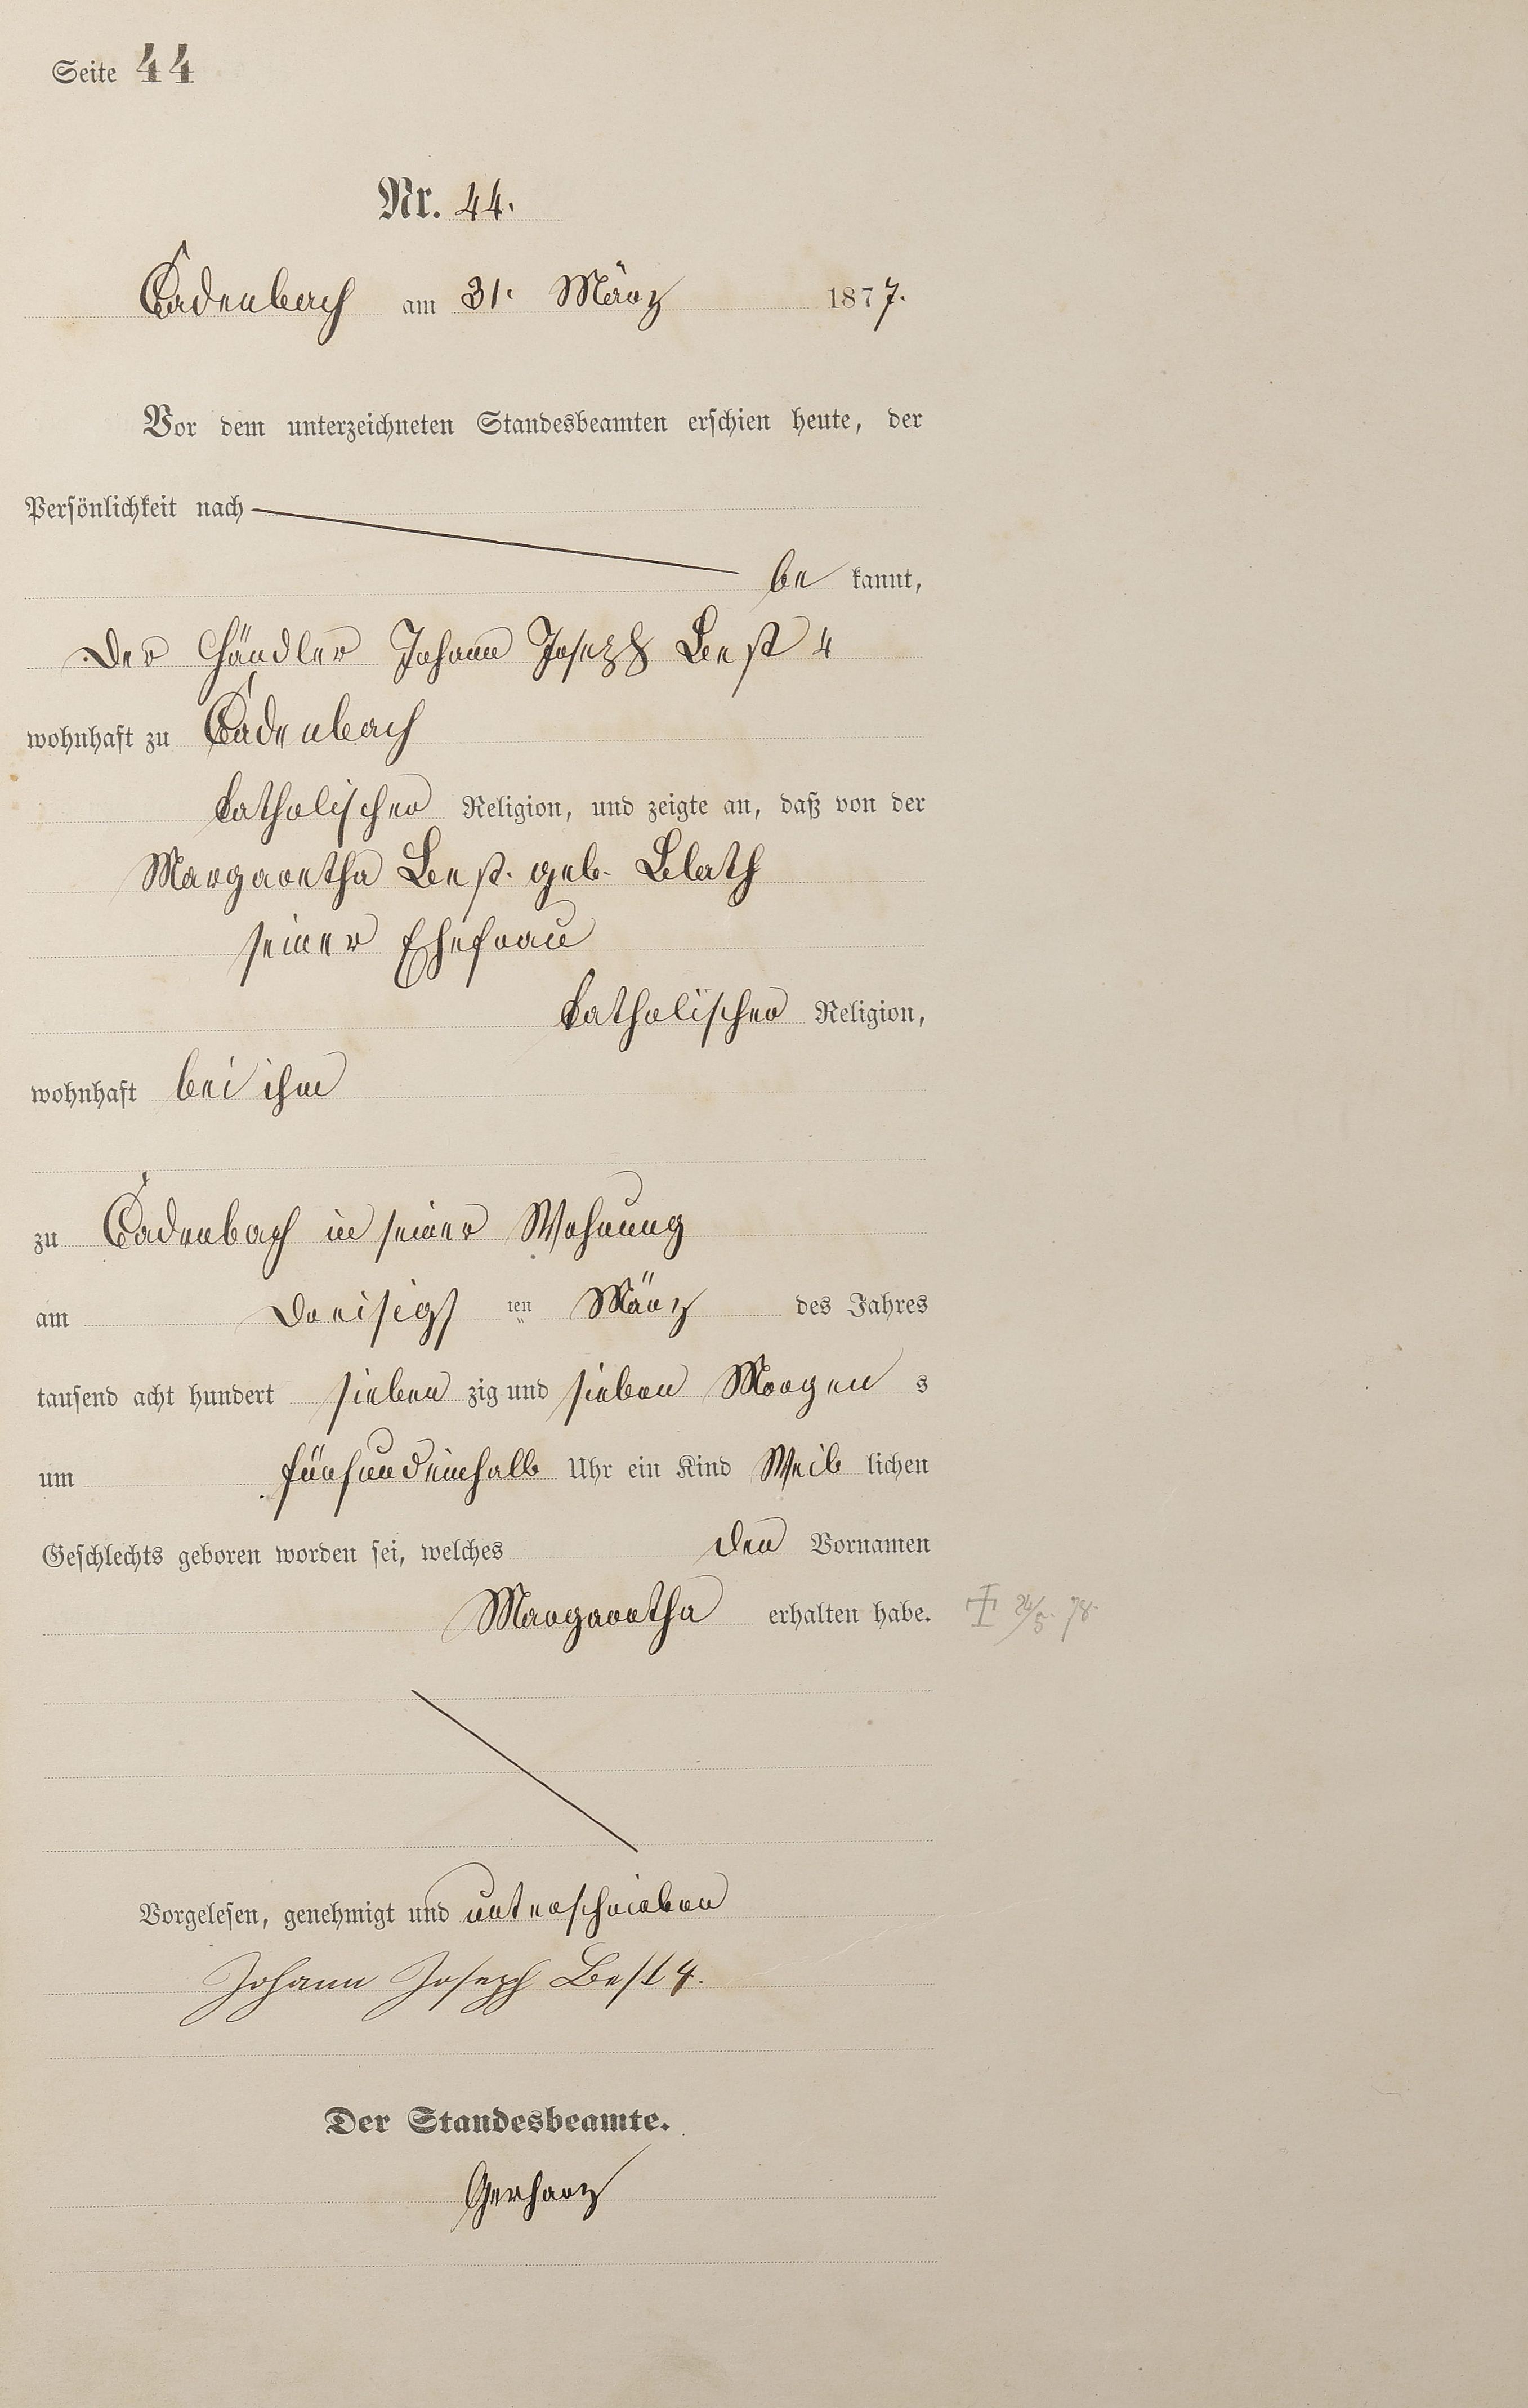 Seite 44
Nr. 44.
Cadenbach am 31. März 1877.
Vor dem unterzeichneten Standesbeamten erschien heute, der
Persönlichkeit nach
be kannt,
der Händler Johann Joseph Best 4
wohnhaft zu Cadenbach
katholischer Religion, und zeigte an, daß von der
Margaretha Best. geb. Blath
seiner Ehefrau
katholischer Religion,
wohnhaft bei ihm
zu Cadenbach in seiner Wohnung
am dreisigs ten März des Jahres
tausend acht hundert sieben zig und sieben Morgen s
um fünfundeinhalb Uhr ein Kind Weib lichen
Geschlechts geboren worden sei, welches den Vornamen
Margaretha erhalten habe. † 24/5. 78.
Vorgelesen, genehmigt und unterschrieben
Johann Joseph Best 4.
Der Standesbeamte.
Gerharz